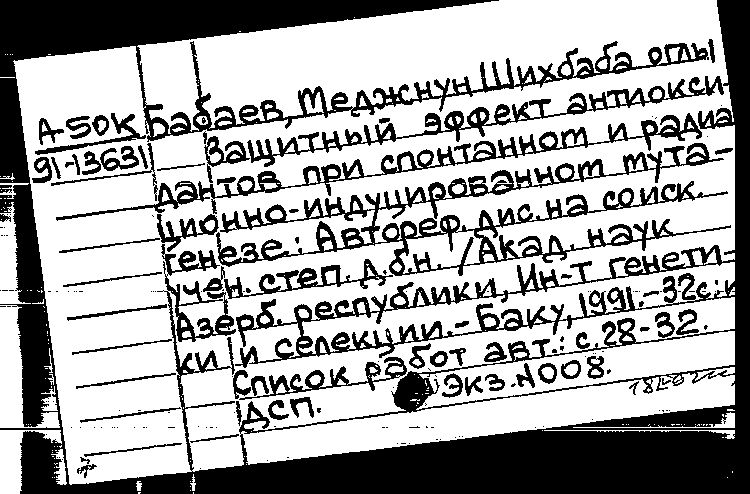 А-50К Бабаев, Меджнун Шихбаба оглы
91-13631 Защитный эффект антиокси-
дантов при спонтанном и радиа
ционно-индуцированном мута-
генезе: Автореф. дис. на соиск.
учен. степ. д.б.н. /Акад. наук
Азерб. республики, Ин-т генети-
ки и селекции.-Баку, 1991.-32с:и
Список работ авт.: с.28-32.
ДСП. Экз.N008.